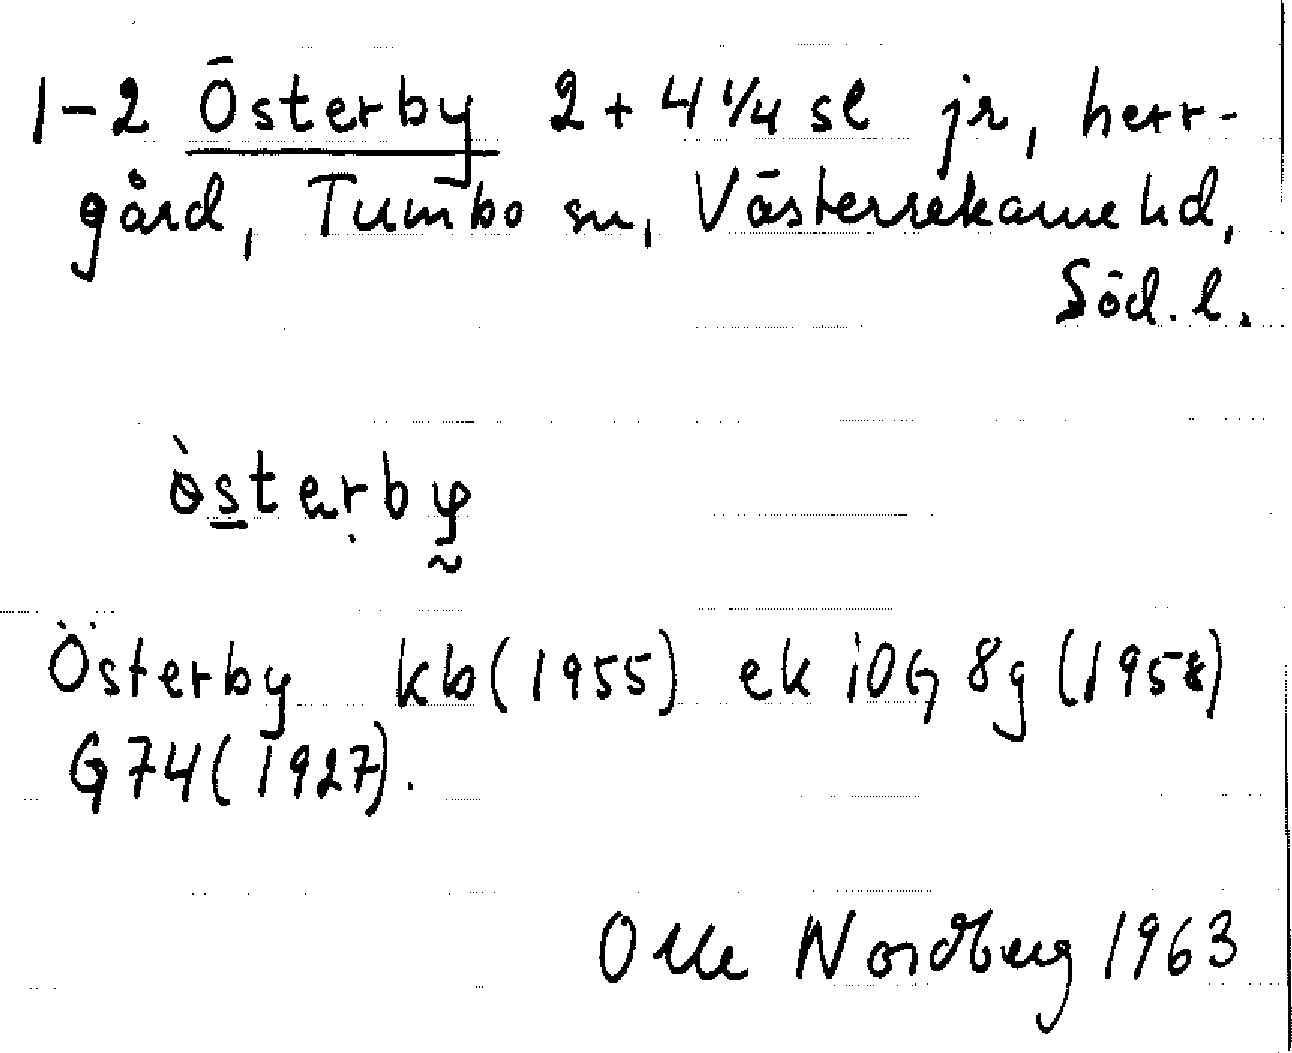 1-2 Österby 2+4 1/4 sl jr, herr-
gård, Tumbo sn, Västerrekarne hd,
Söd. l.
Österby kb(1955) ek 10G 8g (1958)
G74(1927).
Olle Nordberg 1963